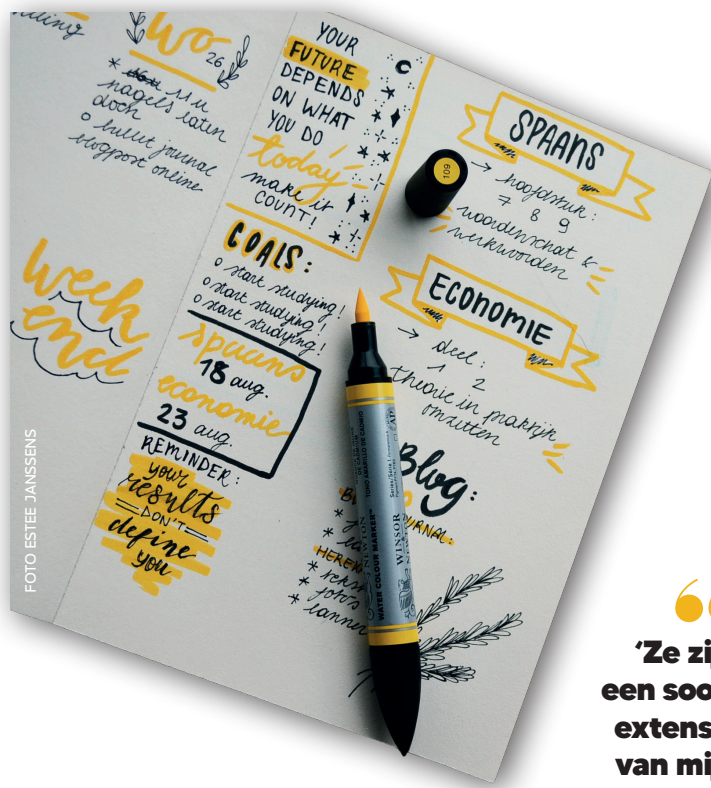 Wo
26
* 11u
nagels laten
doen
o bullet journal
blogpost online
week
end
YOUR
FUTURE
DEPENDS
ON WHAT
YOU DO
today
make it
COUNT!
GOALS:
o start studying!
o start studying!
o start studying!
spaans
18 aug.
economie
23 aug.
REMINDER:
your
results
DON'T
define
you
SPAANS
→ hoofdstuk:
7 8 9
woordenschat &
werkwoorden
ECONOMIE
→ deel:
1 2
theorie in praktijk
omzetten
Blog:
* 
* 
* foto's
109
WINSOR
NEWTON
WATER COLOUR MARKER™
FOTO ESTEE JANSSENS
'Ze zij
een soo
extens
van mij